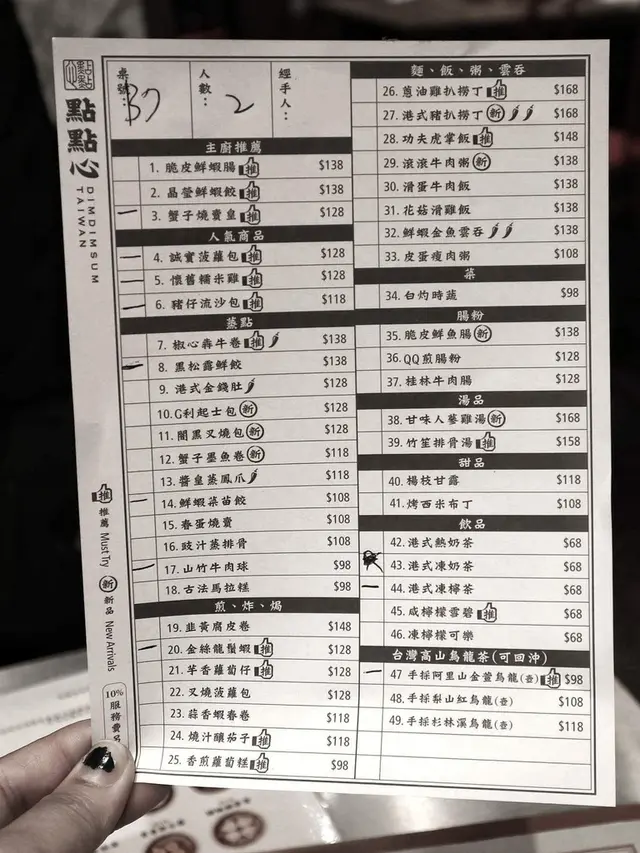 點點心
DIMDIMSUM
TAIWAN
桌號：37
人數：2
經手人：
主廚推薦
1. 脆皮鮮蝦腸 推 $138
2. 晶瑩鮮蝦餃 推 $138
3. 蟹子燒賣皇 推 $128
人氣商品
4. 誠實菠蘿包 推 $128
5. 懷舊糯米雞 推 $128
6. 豬仔流沙包 推 $118
蒸點
7. 椒心犇牛卷 推 $138
8. 黑松露鮮餃 $138
9. 港式金錢肚 $128
10. G利起士包 新 $128
11. 闇黑叉燒包 新 $128
12. 蟹子墨魚卷 新 $118
13. 醬皇蒸鳳爪 $118
14. 鮮蝦菜苗餃 $108
15. 春蛋燒賣 $108
16. 豉汁蒸排骨 $108
17. 山竹牛肉球 $98
18. 古法馬拉糕 $98
煎、炸、焗
19. 韭黃腐皮卷 $148
20. 金絲龍鬚蝦 推 $128
21. 芋香蘿蔔仔 推 $128
22. 叉燒菠蘿包 $128
23. 蒜香蝦春卷 $118
24. 燒汁釀茄子 推 $118
25. 香煎蘿蔔糕 推 $98
麵、飯、粥、雲吞
26. 蔥油雞扒撈丁 推 $168
27. 港式豬扒撈丁 新 $168
28. 功夫虎掌飯 推 $148
29. 滾滾牛肉粥 新 $138
30. 滑蛋牛肉飯 $138
31. 花菇滑雞飯 $138
32. 鮮蝦金魚雲吞 $138
33. 皮蛋瘦肉粥 $108
菜
34. 白灼時蔬 $98
腸粉
35. 脆皮鮮魚腸 新 $138
36. QQ煎腸粉 $128
37. 桂林牛肉腸 $128
湯品
38. 甘味人蔘雞湯 新 $168
39. 竹笙排骨湯 推 $158
甜品
40. 楊枝甘露 $118
41. 烤西米布丁 $108
飲品
42. 港式熱奶茶 $68
43. 港式凍奶茶 $68
44. 港式凍檸茶 $68
45. 咸檸檬雪碧 推 $68
46. 凍檸檬可樂 $68
台灣高山烏龍茶(可回沖)
47 手採阿里山金萱烏龍(壺) 推 $98
48. 手採梨山紅烏龍(壺) $108
49. 手採杉林溪烏龍(壺) $118
推 推薦 Must Try
新 新品 New Arrivals
10%服務費